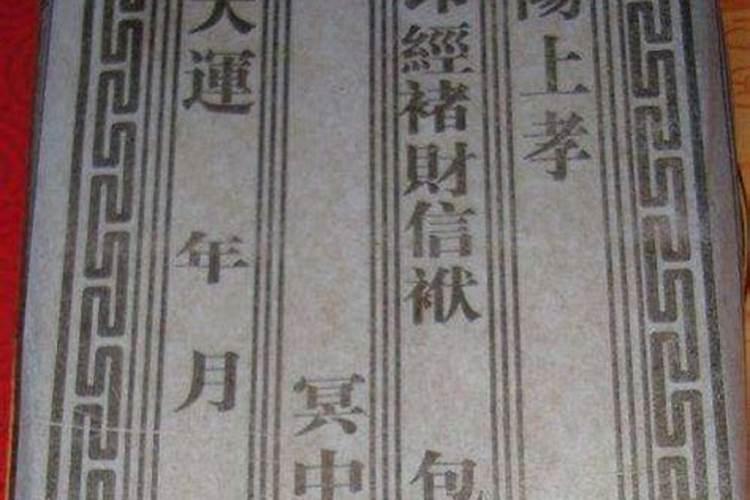 陽上孝
經褚財信袱 包
冥中
天運 年 月